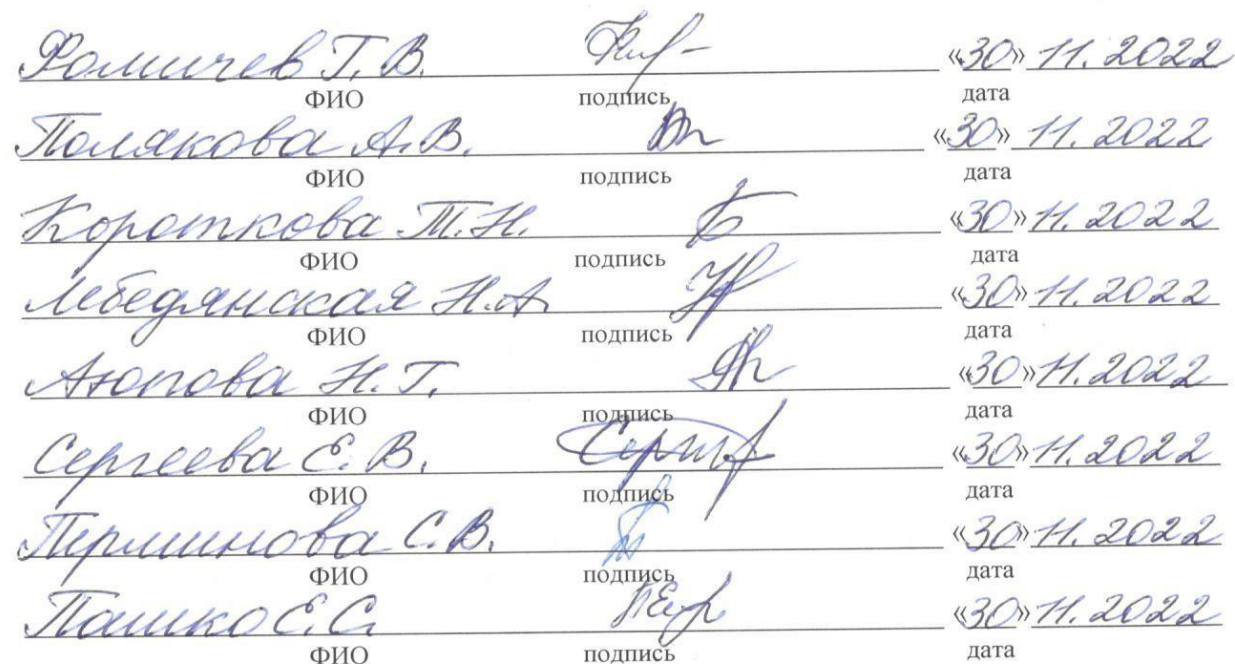 Фомичев Т. В. «30» 11. 2022
ФИО подпись дата
Полякова А. В. «30» 11. 2022
ФИО подпись дата
Короткова Т. Н. «30» 11. 2022
ФИО подпись дата
Лебедянская Н. А «30» 11. 2022
ФИО подпись дата
Аюпова Н. Г. «30» 11. 2022
ФИО подпись дата
Сергеева Е. В. «30» 11. 2022
ФИО подпись дата
Перминова С. В. «30» 11. 2022
ФИО подпись дата
Пашко Е. С. «30» 11. 2022
ФИО подпись дата